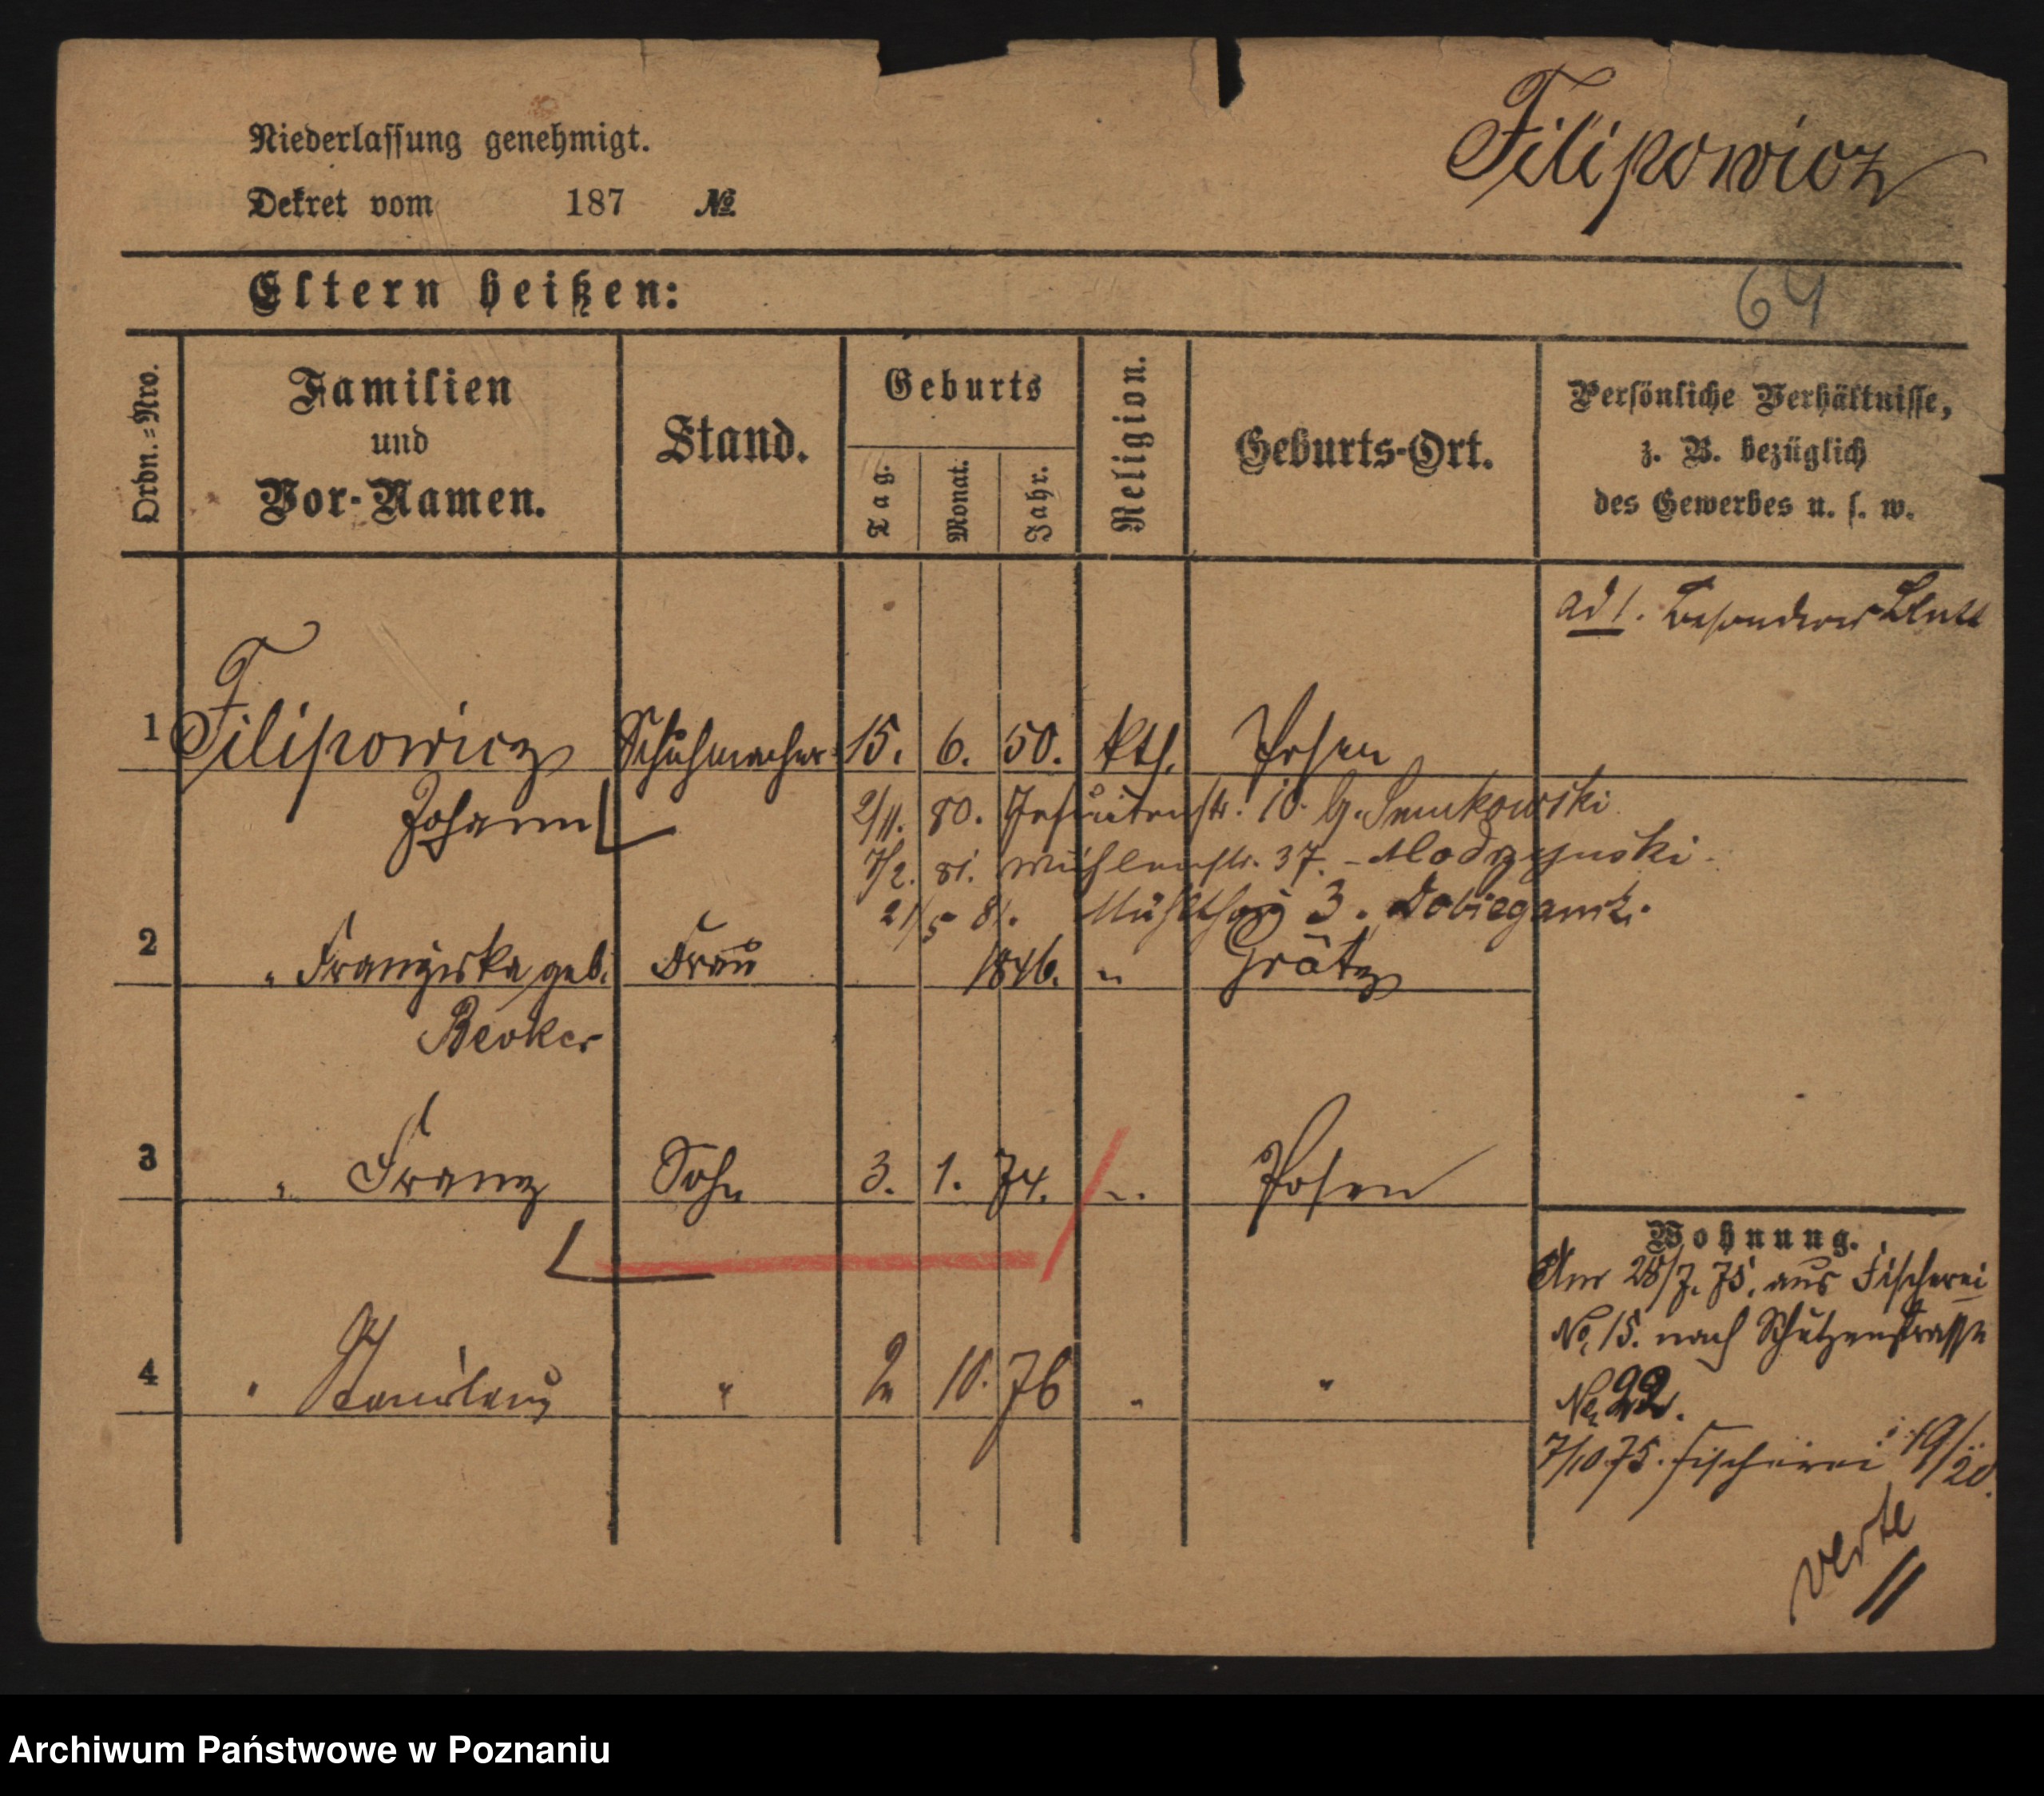 Niederlassung genehmigt.
Dekret vom 187 №
Filipowicz
Eltern heißen:
64
Ordn.=Nro.
Familien
und
Vor-Namen.
Stand.
Geburts
Tag.
Monat.
Jahr.
Religion.
Geburts-Ort.
Persönliche Verhältnisse,
z. B. bezüglich
des Gewerbes u. s. w.
ad 1. besonderes Blatt
1 Filipowicz Schuhmacher 15. 6. 50. kth. Posen
Johann
2/11. 80. Jesuitenstr. 10. G. Smukowski
7/2. 81. Mühlenstr. 37. - Modrzynski.
21/5 81. 3. Dobieganski.
2 " Franziska geb. Frau 1846. " Grätz
Becker
3 " Franz Sohn 3. 1. 74. " Posen
Wohnung.
Am 28/7. 75. aus Fischerei
No. 15. nach Schützenstrasse
No. 22.
7/10 75. Fischerei 19/20.
4 " Stanislaus " 2 10. 76 " "
verte
Archiwum Państwowe w Poznaniu